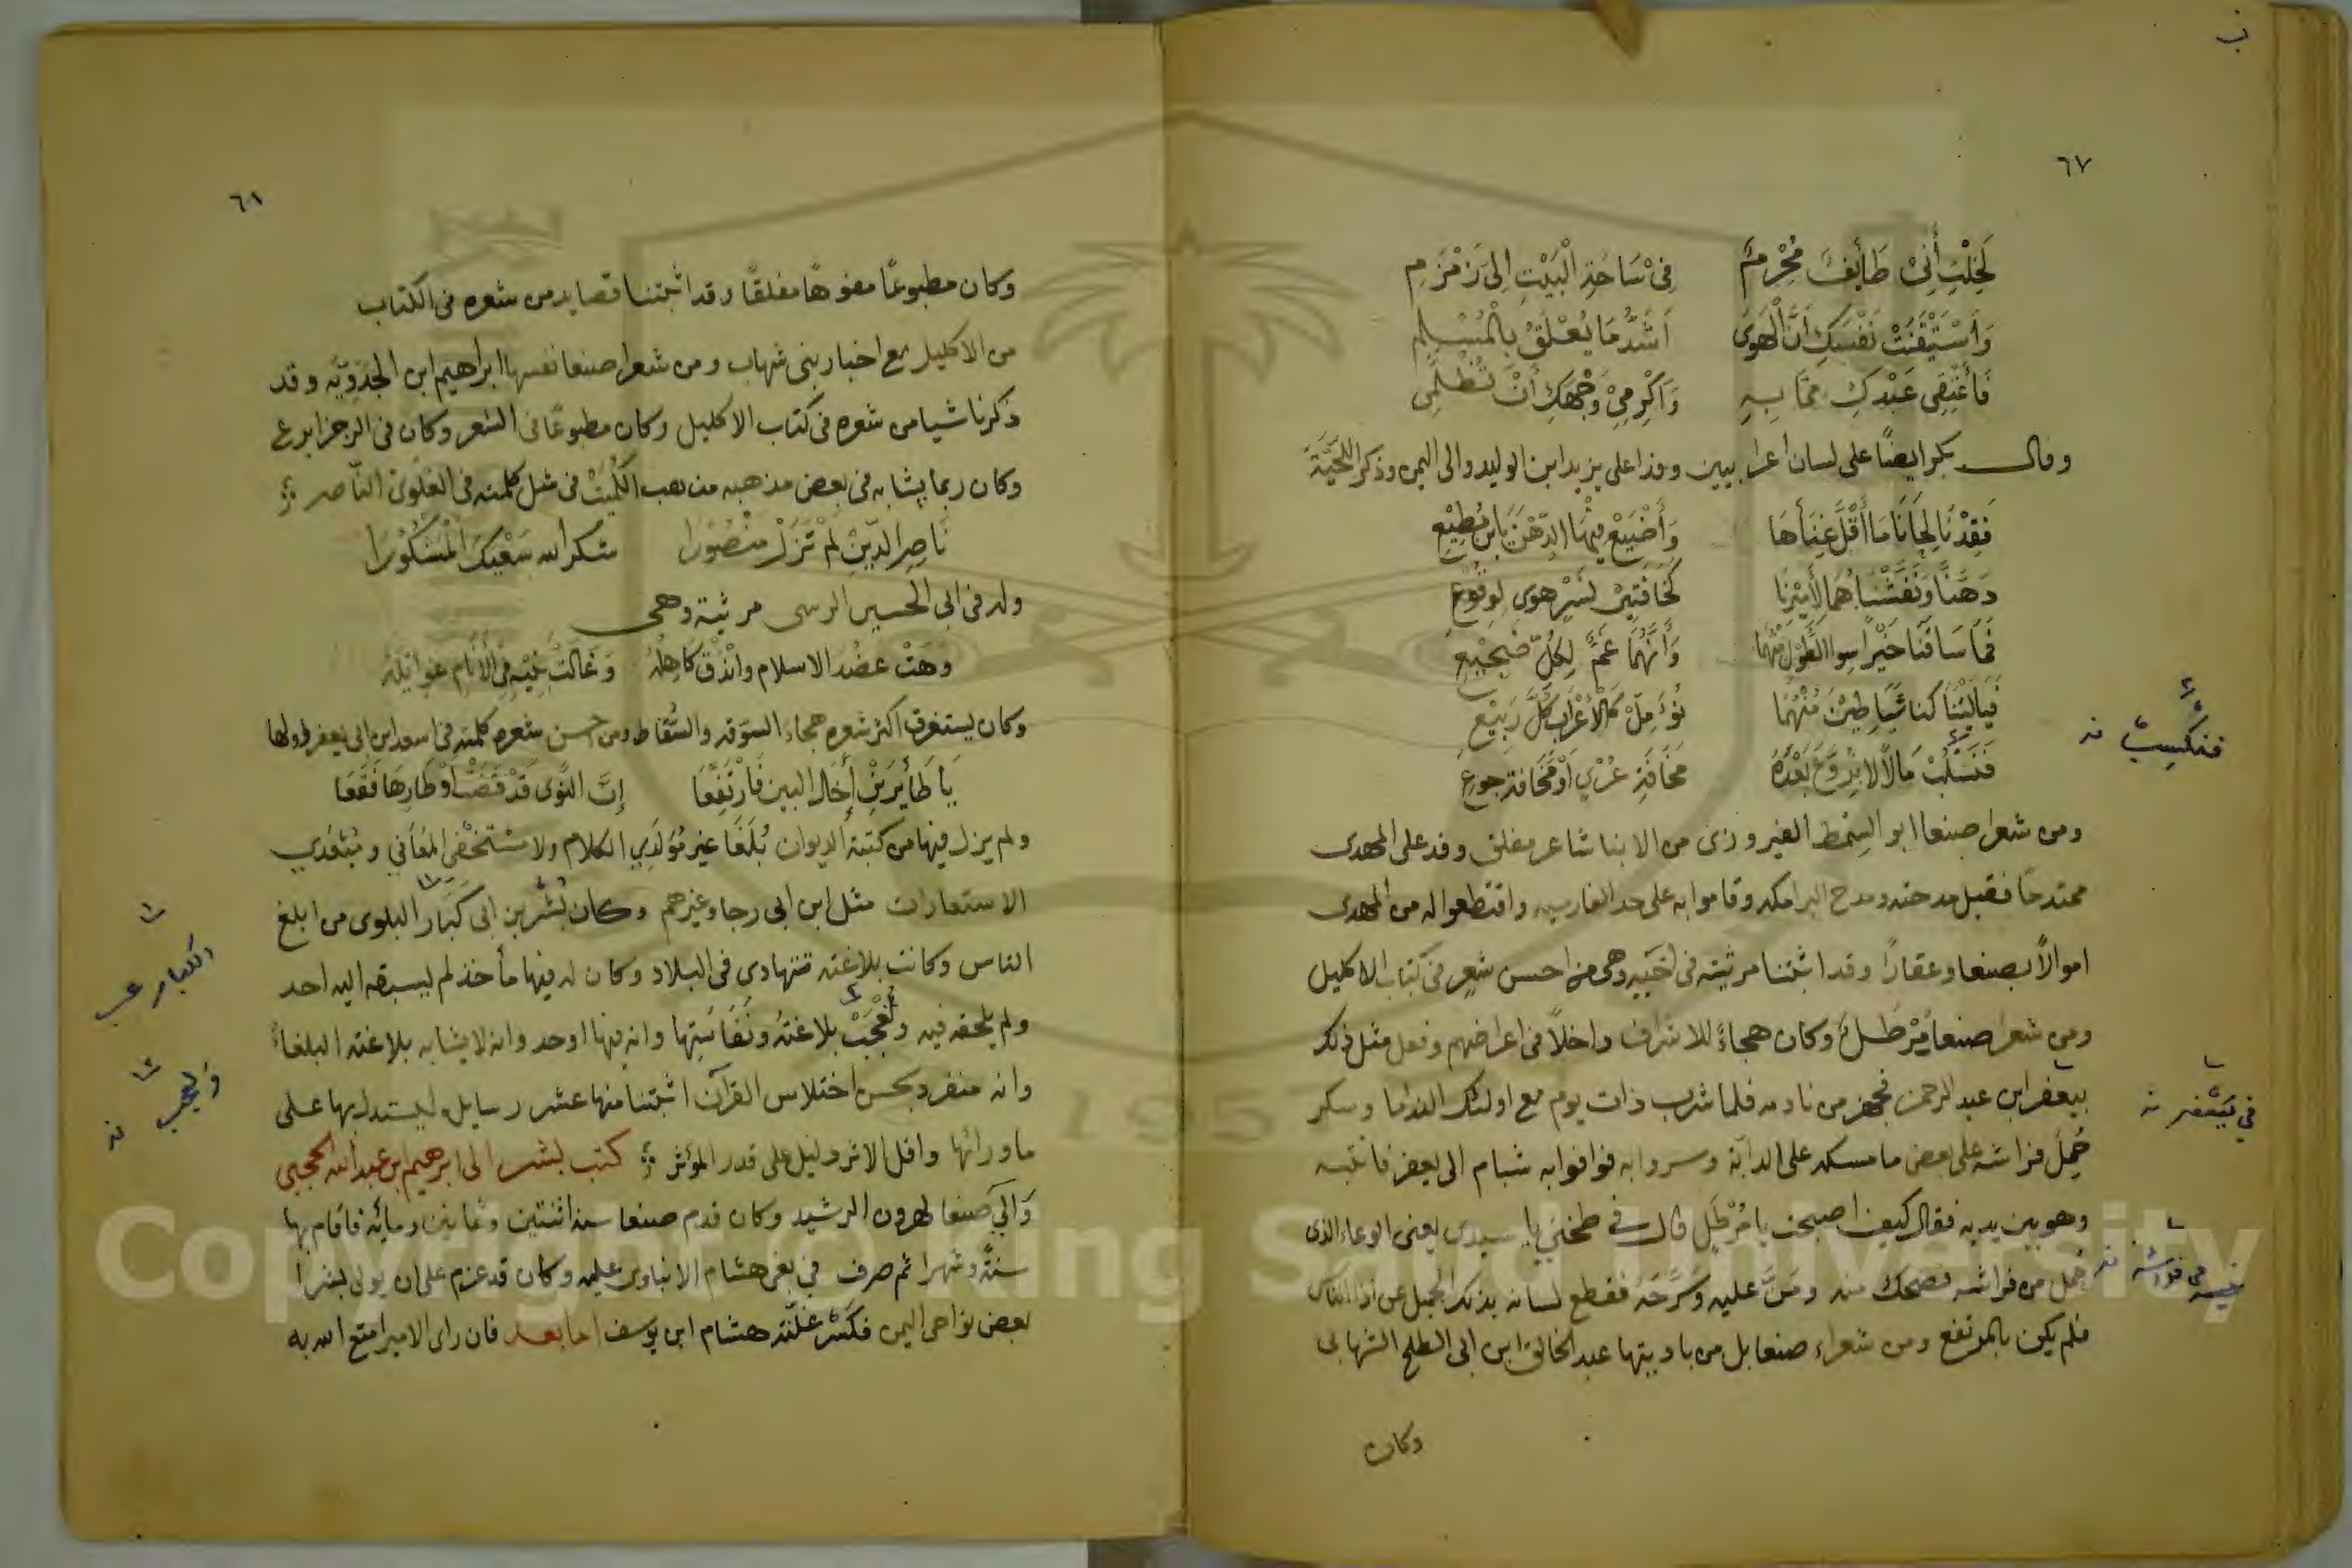 ٦٧
لَخِلْتِ أَنِّىْ طَائِفٌ مُحْرِمٌ فِىْ سَاحَةِ الْبَيْتِ اِلىَ زَمْزَمِ
وَاسْتَيْقَنَتْ نَفْسَكِ اَنَّ الْهَوَىَ اَشَدُّ مَا يُعْلَقُ بِالْمُسْلِمِ
فَأَعْتِقِى عَبْدَكِ مِمَّا بِهِ وَاَكْرِمِىْ وَجْهَكِ اَنْ تُظْلَمِى
وقال بكر ايضًا على لسان اعرابيين وفدا على يزيد ابن الوليد والى اليمن وذكر اللحية
فَقِدْنَا لِحَانَا مَا أَقَلَّ غِنَاَهَا وَأَضْيَعْ فِيهَا الدَّهْنَ يَابنَ مُطِيْعِ
دَهَنَّا وَنَفَّشْنَاهُمَا لِأَمِيْرِنَا كَخَافَتِيْ نَسْرٍ هَوى لِوِقُوعِ
فَمَا سَاقَتَا خَيْرًا سِوَا الطُّوْلِ مِنْهُمَا وَأَنَّهُمَا غَمٌّ لِكُلِّ ضَجِيْعِ
فَيَالَيْتَنَا كنا شَيَاطِيْنَ مِنْهُمَا نُؤَمِّلُ كَالْاَعْرَابِ كُلَّ رَبِيْعِ
فَنَسْلُبُ مَالًا لَا نُرَوَّعُ بَعْدَهُ مَخَافَةِ عُرْيٍ اَوْ مَخَافَةِ جوعِ
ومن شعرا صنعا ابو السِمْط الفيروزى من الابنا شاعر مفلق وفد على المهدى
ممتدحًا فقبل مدحته ومدح البرامكه وقاموا به على حد الفارسيه واقتطعوا له من المهدى
اموالاً بصنعا وعقارًا وقد اثبتنا مرثيته فى اخيه وهى من احسن شعرٍ فى كتاب الاكليل
ومن شعرا صنعا مُرْطَلٌ وكان هجاءً للاشراف داخلاً فى اعراضهم وفعل مثل ذلك
بيعفر ابن عبد الرحمن فجهز من نادمه فلما شرب ذات يوم مع اولئك الندما وسكر
حُمِلَ فراشه على بعض ما مسكه على الدابّة وسروا به فوافوا به شبام الى يعفر فانتبه
وهو بين يديه فقال كيف اصبحت يا مُرْطَل قال فى طحنى يا سيدى يعنى الوعاء الذى
حُمل من فراشه فضحك منه ومَنَّ عليه وَسَرَّحَه فقطع لسانه بذلك الجميل عن اذا الناس
فلم يكن بالمرتفع ومن شعراء صنعا بل من باديتها عبد الخالق ابن ابى الطلح الشهابى
وكان
فنكسب نه
فى يعفر نه
فى فراشه نه
٦٨
وكان مطبوعًا مفوهًا مفلقًا وقد اثبتنا قصايد من شعره فى الكتاب
من الاكليل مع اخبار بنى شهاب ومن شعرا صنعا نفسها ابراهيم ابن الجَدَوِيَّه وقد
ذكرنا شيا من شعره فى كتاب الاكليل وكان مطبوعًا فى الشعر وكان فى الرجز ابرع
وكان ربما يشابه فى بعض مذهبه مذهب الكُمَيْت فى مثل كلمته فى العَلَوىّ الناصر
نَاصِرَ الدِّيْنِ لَمْ تَزَلْ مَنْصُوْرَا شكر الله سَعْيَكَ الْمَشْكُوْرَا
وله فى ابى الحسين الرسى مرثية وهى
وَهَتْ عَضُد الاسلام وانْدَقَّ كَاهِلُهْ وَغَالَتْ بَنِيْهِ فِى الْأَنَامِ غوايلهْ
وكان يستغرق اكثر شعره هجاءَ السوقه والسُّقاط ومن احسن شعره كلمته فى اسعد ابن ابى يعفر اولها
يَا طَائِرَيَّ أَخَالُ البين فَارْتَفِعَا إِنَّ النَّوَى قَدْ قَضَتْ اوْطَارِهَا فَقَعَا
ولم يزل فيها من كتبة الديوان بُلَغَا غير مُوَلَّدي الكلام ولا مستخفى المعَانى ومُبْتَعَدي
الاستعارات مثل ابن ابى رجا وغيرهم وكان بُشْر بن ابى كَبَار البلوى من ابلغ
الناس وكانت بلاغته تتهادى فى البلاد وكان له فيها مأخذ لم يسبقه اليه احد
ولم يلحقه فيه ولعُجْبِ بلاغتهُ ونَفَاستِها وانه فيها اوحد وانه لا يشابه بلاغته البلغاءَ
وانه منفرد بحسن اختلاس القرآن اثبتنا منها عشر رسايل ليستدل بها على
ما ورائها واقل الاثر دليل على قدر المؤثر كتب بشر الى ابرهيم ابن عبد الله الحجبى
وَالِى صنعا لهرون الرشيد وكان قدم صنعا سنة اثنتين وثمانين ومائة فاقام بها
سنةً وشهرا ثم صرف فى بغى هشام الابناوى عليه وكان قد عزم على ان يولى بشرا
بعض نواحى اليمن فكسر عَلَيْه هشام ابن يوسف اما بعد فان راى الامير امتع الله به
الكبار
ولعجب نه
Copyright © King Saud University
195